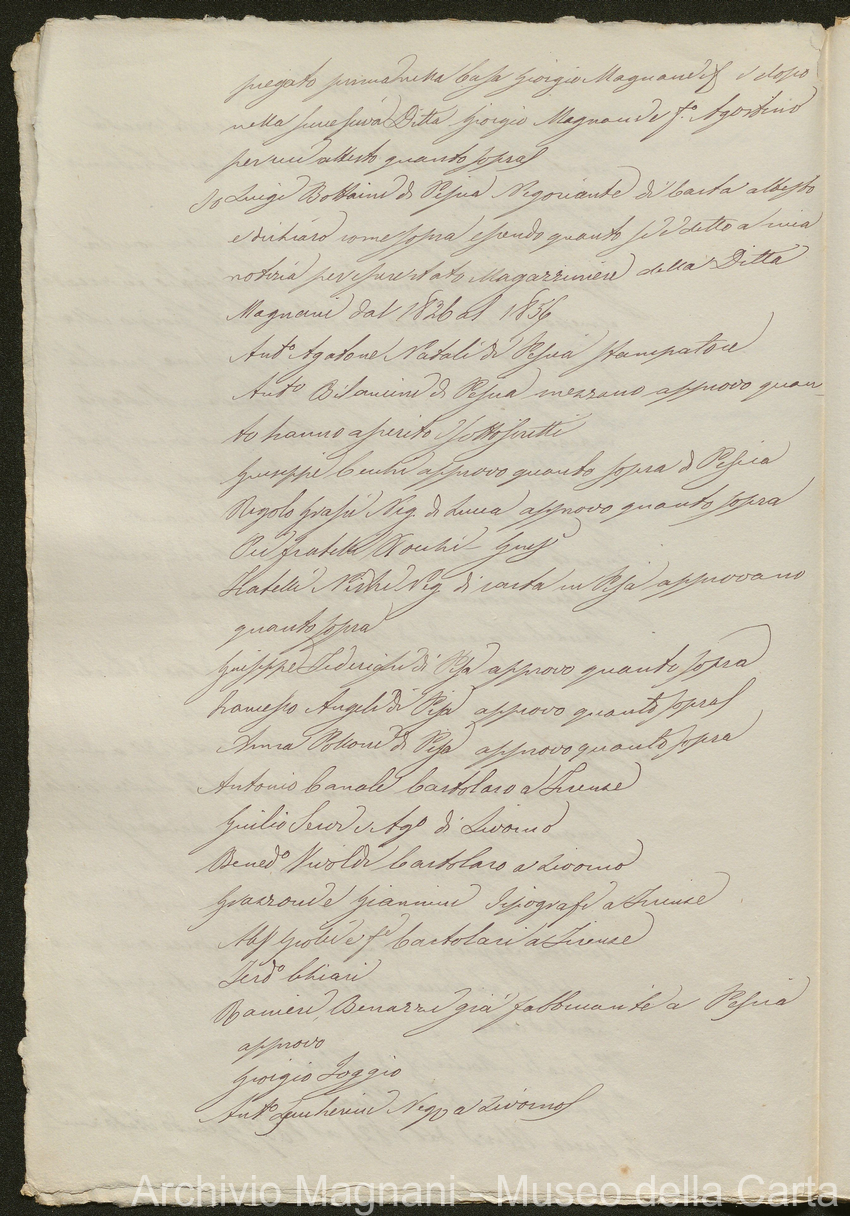 piegato prima nella Casa Giorgio Magnani e dopo
nella successiva Ditta Giorgio Magnani e f.o Agostino
per cui attesto quanto sopra
Io Luigi Bottaini di Pescia Negoziante di Carta attesto
e dichiaro come sopra essendo quanto si è detto a mia
notizia per essere stato Magazziniere della Ditta
Magnani dal 1826 al 1856
Ant.o Agatone Natali di Pescia stampatore
Ant.o Bilancini di Pescia mezzano approvo quan-
to hanno asserito i sottoscritti
Giuseppe Cecchi approvo quanto sopra di Pescia
Regolo Grassi Neg. di Lucca approvo quanto sopra
Per fratelli
Fratelli Nistri Neg. di carta in Pisa approvano
quanto sopra
Giuseppe Federighi di Pisa approvo quanto sopra
Francesco Angeli di Pisa approvo quanto sopra
Anna di Pisa approvo quanto sopra
Antonio Canale Cartolaro a Firenze
Giulio Servi e Ag.o di Livorno
Bened.o Cartolaro a Livorno
Grazzini e Giannini Tipografi a Firenze
e f.o Cartolari a Firenze
Ferd.o Chiari
Ranieri Benazzi già fabbricante a Pescia
approvo
Giorgio
Ant.o Zuccherini Neg. a Livorno
Archivio Magnani - Museo della Carta